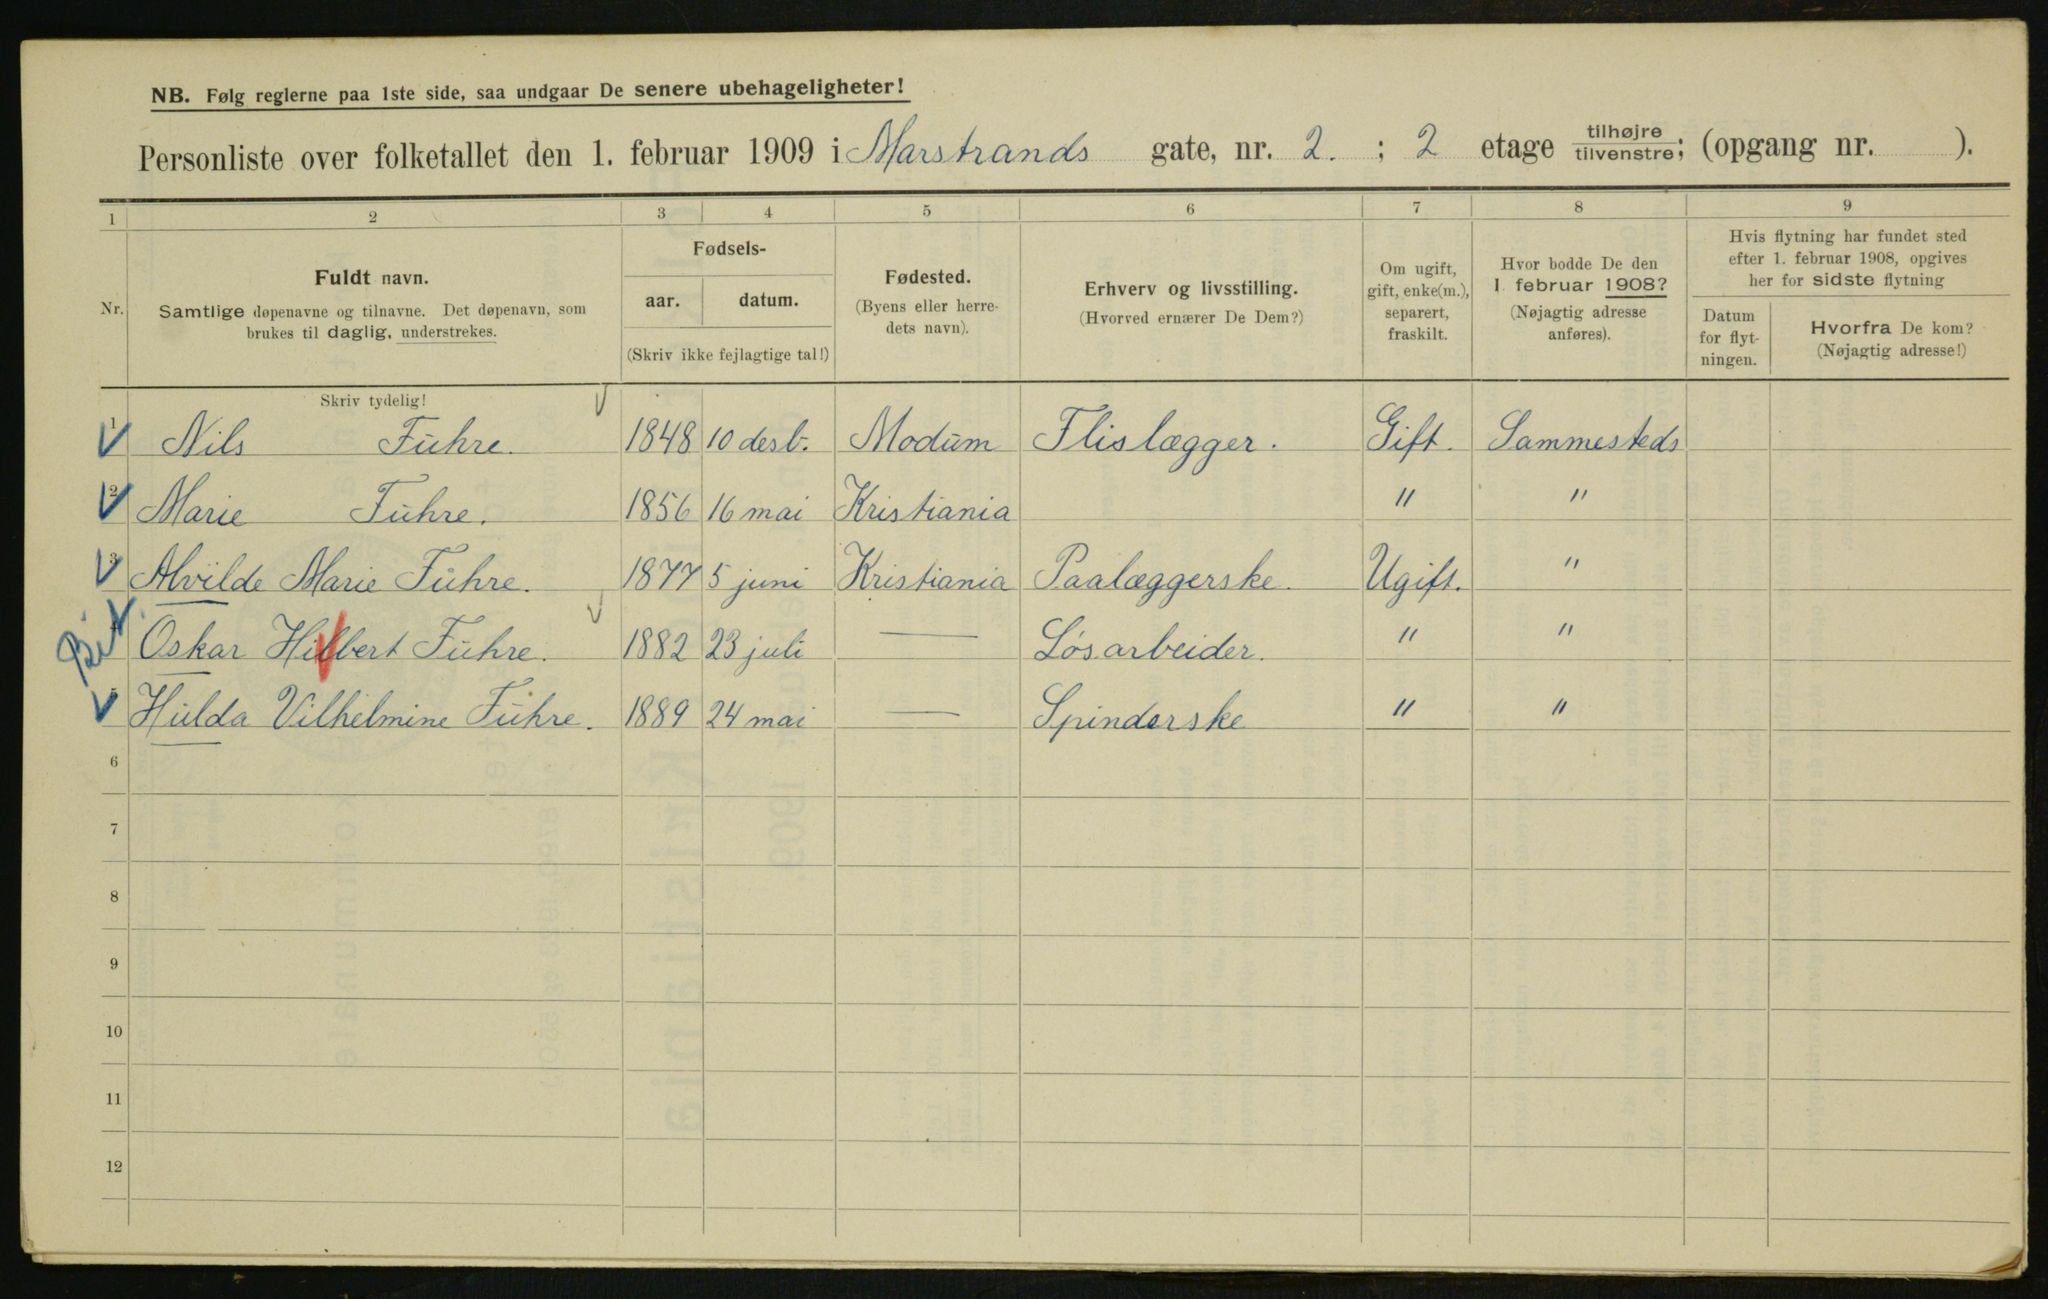 NB. Følg reglerne paa 1ste side, saa undgaar De senere ubehageligheter!
Personliste over folketallet den 1. februar 1909 i Marstrands gate, nr. 2. ; 2 etage tilhøjre/tilvenstre; (opgang nr. ).
1 2 3 4 5 6 7 8 9
Nr.
Fuldt navn.
Samtlige døpenavne og tilnavne. Det døpenavn, som
brukes til daglig, understrekes.
Fødsels-
aar. datum.
(Skriv ikke fejlagtige tal!)
Fødested.
(Byens eller herre-
dets navn).
Erhverv og livsstilling.
(Hvorved ernærer De Dem?)
Om ugift,
gift, enke(m.),
separert,
fraskilt.
Hvor bodde De den
1. februar 1908?
(Nøjagtig adresse
anføres).
Hvis flytning har fundet sted
efter 1. februar 1908, opgives
her for sidste flytning
Datum
for flyt-
ningen.
Hvorfra De kom?
(Nøjagtig adresse!)
Skriv tydelig!
1 Nils Fuhre. 1848 10 desb. Modum Flislægger. Gift. Sammesteds
2 Marie Fuhre. 1856 16 mai Kristiania " "
3 Alvilde Marie Fuhre. 1877 5 juni Kristiania Paalæggerske. Ugift. "
Oskar Hilbert Fuhre. 1882 23 juli — Løsarbeider. " "
5 Hulda Vilhelmine Fuhre. 1889 24 mai — Spinderske " "
6
7
8
9
10
11
12